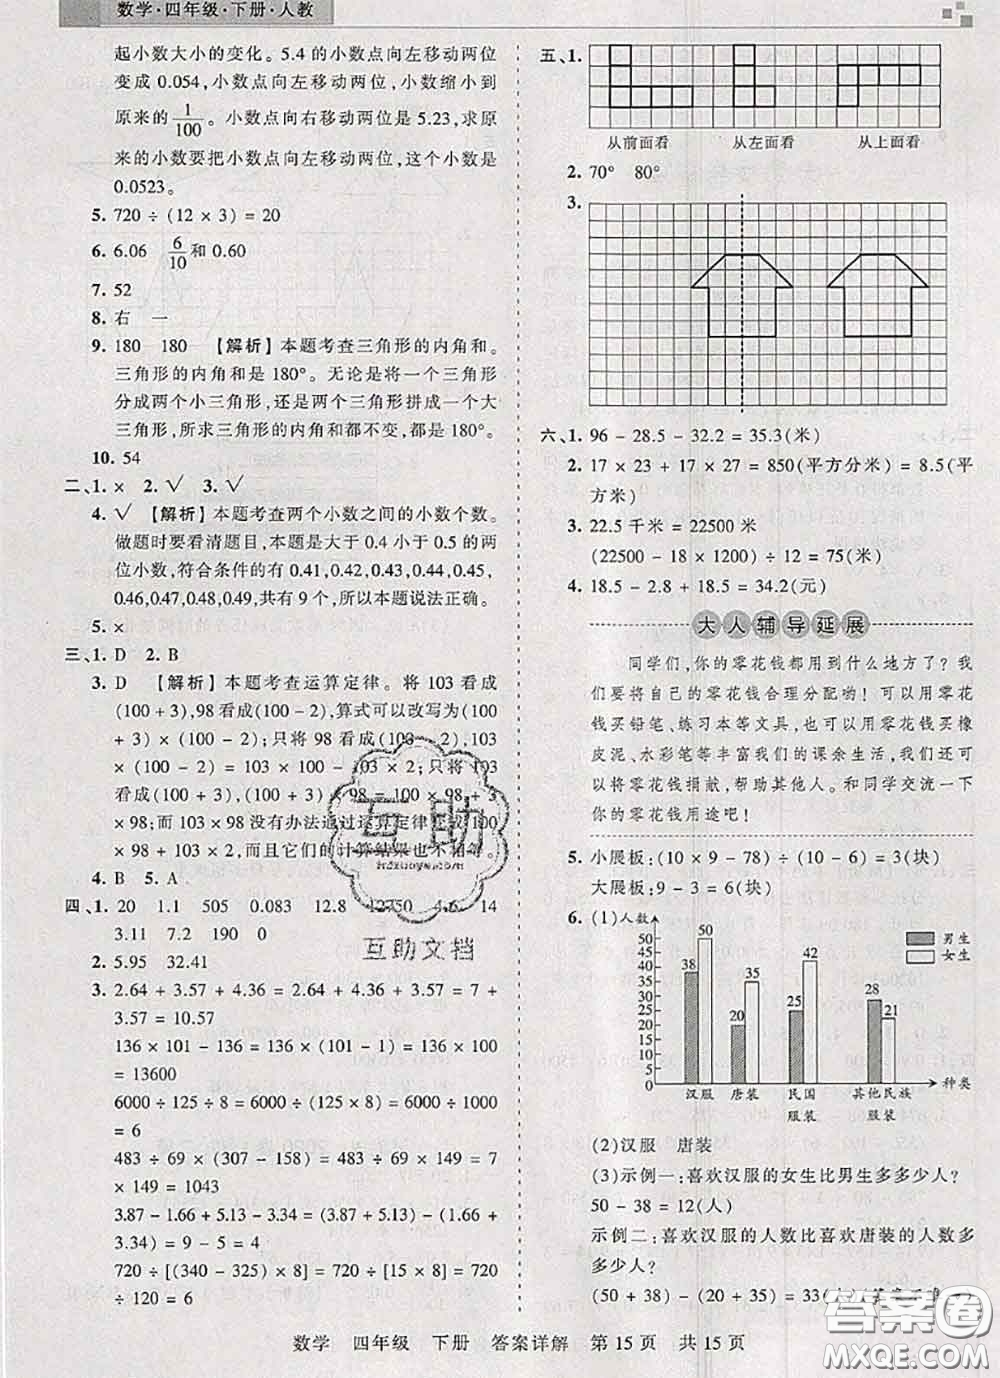 数学·四年级·下册·人教
起小数大小的变化。5.4的小数点向左移动两位
变成0.054,小数点向左移动两位,小数缩小到
原来的1/100。小数点向右移动两位是5.23,求原
来的小数要把小数点向左移动两位,这个小数是
0.0523。
5. 720 ÷ (12 × 3) = 20
6. 6.06 6/10和0.60
7. 52
8. 右 一
9. 180 180 【解析】本题考查三角形的内角和。
三角形的内角和是180°。无论是将一个三角形
分成两个小三角形,还是两个三角形拼成一个大
三角形,所求三角形的内角和都不变,都是180°。
10. 54
二、1. × 2. √ 3. √
4. √ 【解析】本题考查两个小数之间的小数个数。
做题时要看清题目,本题是大于0.4小于0.5的两
位小数,符合条件的有0.41,0.42,0.43,0.44,0.45,
0.46,0.47,0.48,0.49,共有9个,所以本题说法正确。
5. ×
三、1. D 2. B
3. D 【解析】本题考查运算定律。将103看成
(100 + 3),98看成(100 - 2),算式可以改写为(100
+ 3) × (100 - 2);只将98看成(100 - 2),103
× (100 - 2) = 103 × 100 - 103 × 2;只将103
看成(100 + 3),(100 + 3) × 98 = 100 × 98 + 3
× 98;而103 × 98没有办法通过运算定律变成100 ×
100,而且它们的计算结果也不相等。
4. B 5. A
四、1. 20 1.1 505 0.083 12.8 12750 6.6 14
3.11 7.2 190 0
2. 5.95 32.41
3. 2.64 + 3.57 + 4.36 = 2.64 + 4.36 + 3.57 = 7 +
3.57 = 10.57
136 × 101 - 136 = 136 × (101 - 1) = 136 × 100
= 13600
6000 ÷ 125 ÷ 8 = 6000 ÷ (125 × 8) = 6000 ÷ 1000
= 6
483 ÷ 69 × (307 - 158) = 483 ÷ 69 × 149 = 7
× 149 = 1043
3.87 - 1.66 + 5.13 - 3.34 = (3.87 + 5.13) - (1.66 +
3.34) = 9 - 5 = 4
720 ÷ [(340 - 325) × 8] = 720 ÷ [15 × 8] = 720
÷ 120 = 6
五、1.
从前面看 从左面看 从上面看
2. 70° 80°
3.
六、1. 96 - 28.5 - 32.2 = 35.3(米)
2. 17 × 23 + 17 × 27 = 850(平方分米) = 8.5(平
方米)
3. 22.5千米 = 22500米
(22500 - 18 × 1200) ÷ 12 = 75(米)
4. 18.5 - 2.8 + 18.5 = 34.2(元)
大人辅导延展
同学们,你的零花钱都用到什么地方了?我
们要将自己的零花钱合理分配哟!可以用零花
钱买铅笔、练习本等文具,可以用零花钱买橡
皮泥、水彩笔等丰富我们的课余生活,我们还可
以将零花钱捐献,帮助其他人。和同学交流一下
你的零花钱用途吧!
5. 小展板:(10 × 9 - 78) ÷ (10 - 6) = 3(块)
大展板:9 - 3 = 6(块)
6. (1)人数
50
45
40
35
30
25
20
15
10
5
0
38 50 20 35 25 42 28 21
男生
女生
汉服 唐装 民国服装 其他民族服装 种类
(2)汉服 唐装
(3)示例一:喜欢汉服的女生比男生多多少人?
50 - 38 = 12(人)
示例二:喜欢汉服的人数比喜欢唐装的人数多
多少人?
(50 + 38) - (20 + 35) = 33(人)
互助
hdzuoye.com
互助文档
答案圈
MXQE.COM
数学 四年级 下册 答案详解 第15页 共15页